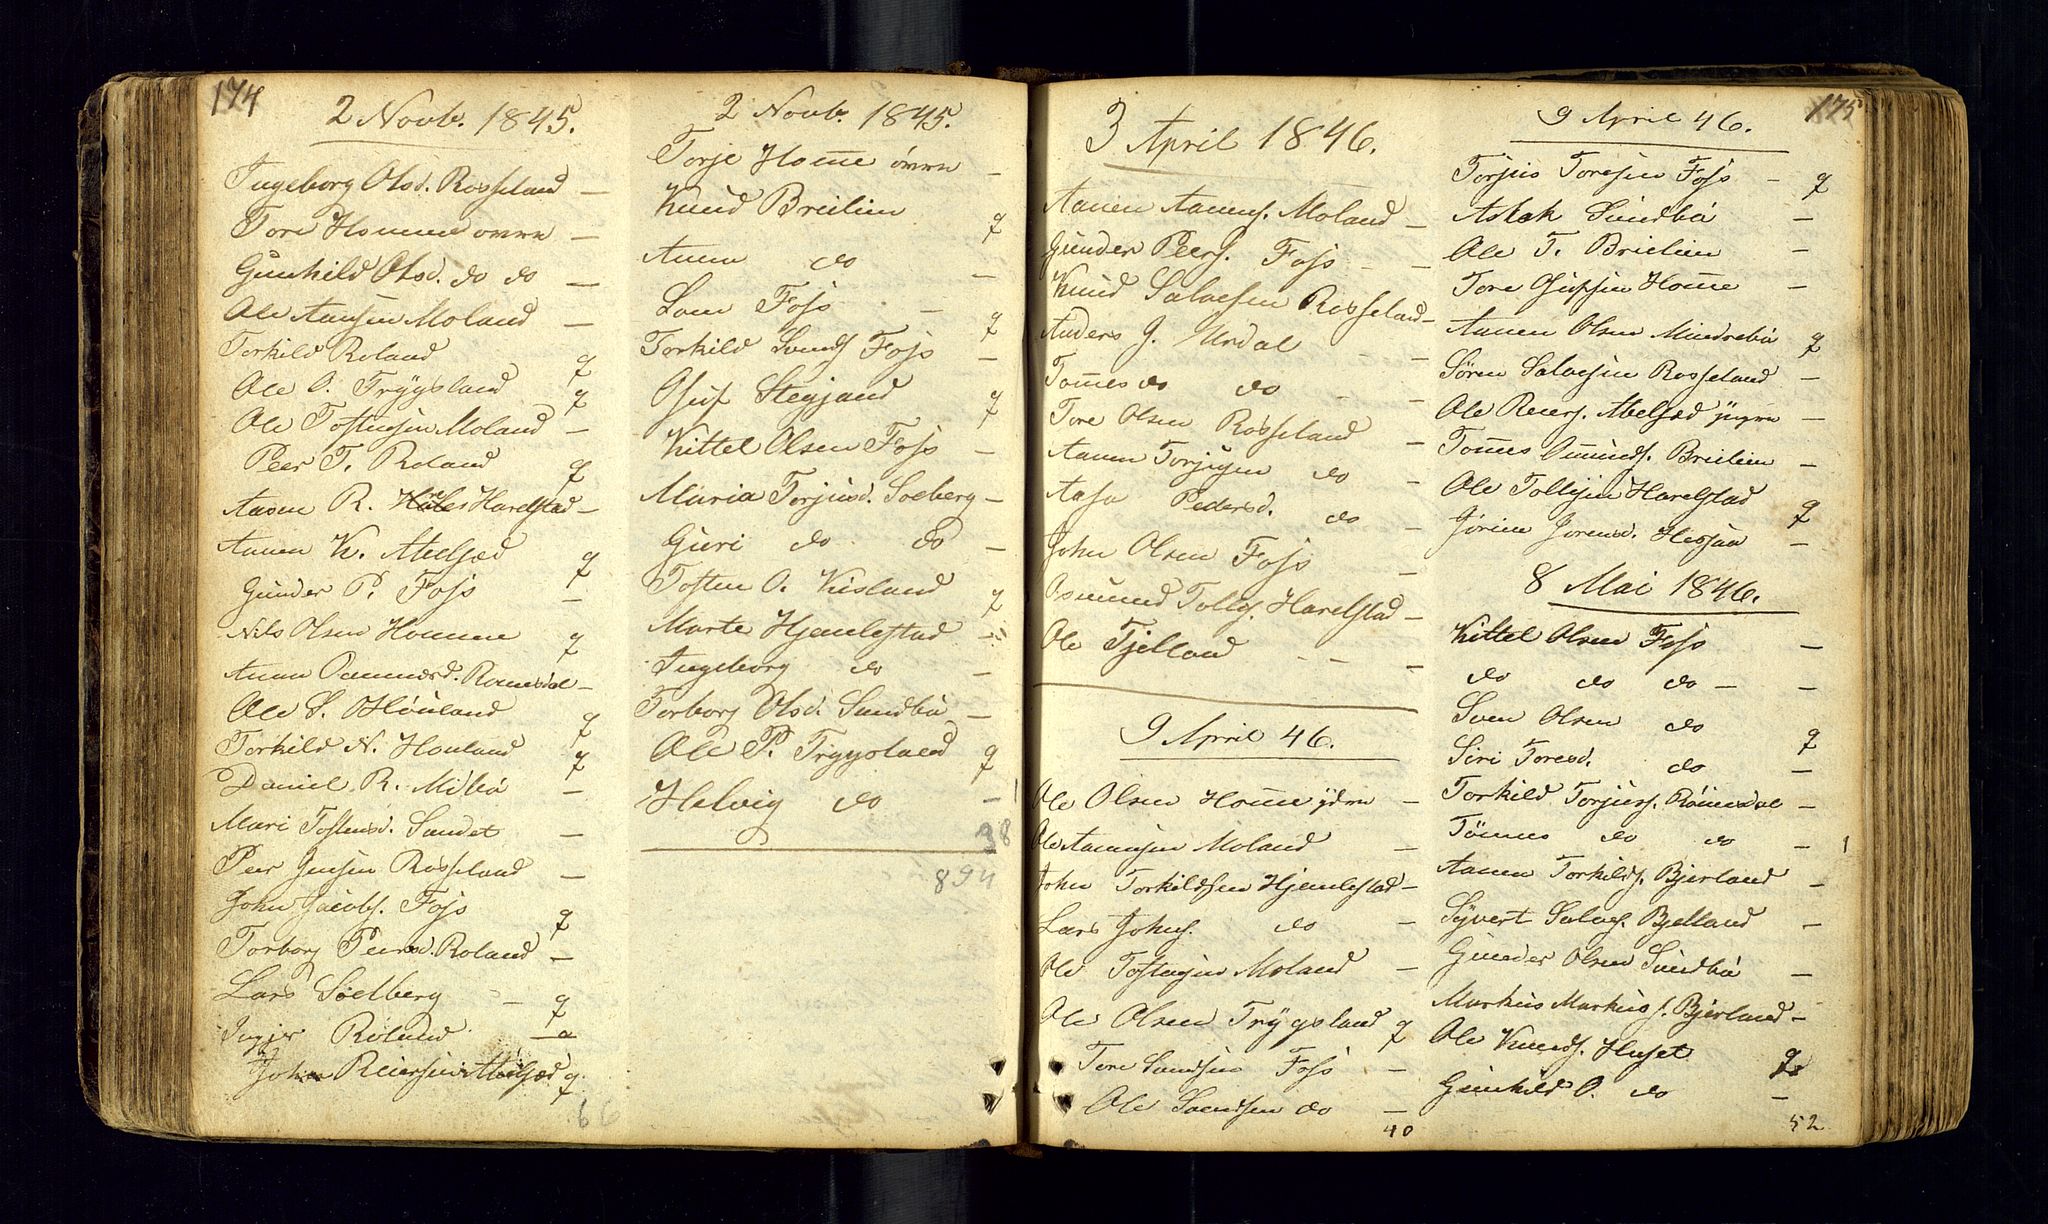 174
2 Novb. 1845.
Ingeborg Olsd. Rosseland —
Tore Homme øvre —
Gunhild Olsd. do do —
Ole Aansen Moland —
Torkild Roland q
Ole O. Trygsland q
Ole Tostensen Moland —
Peer T. Roland q
Aanen R. Harelstad —
Aanen K. Abelsæd q
Gunder P. Foss —
Nils Olsen Homme q
Anne Aanensd. Romesdal —
Ole S. Høuland q
Torkild N. Houland q
Daniel R. Mibø —
Mari Tostensd. Sandet —
Peer Jensen Rosseland —
John Jacobs. Foss q
Torborg Peersd. Roland —
Lars Soelberg — q
Inger Roland —
John Reiersen Abelsæd q.
66
2 Novb. 1845.
Torje Home øvre —
Knud Breilien q
Anne do —
Love Foss — q
Torkild Svends. Foss —
Osuf Stegjand q
Kittel Olsen Foss —
Maria Torjusd. Soeberg —
Guri do do —
Tosten O. Kisland q
Marte Hjemlestad —
Ingeborg do —
Torborg Olsd. Sundbø —
Ole P. Trygsland q
Helvig do —
38
894
3 April 1846.
Aanen Aanens. Moland —
Gunder Peers. Foss — —
Knud Salvesen Rosseland —
Anders G. Urdal — —
Tomes do do — —
Tore Olsen Rosseland —
Aanen Torjusen do —
Aasa Pedersd. do —
John Olsen Foss —
Osmund Tolles. Harelstad —
Ole Fjelland — — —
9 April 46.
Ole Olsen Home ydre —
Ole Aanensen Moland —
John Torkildsen Hjemlestad —
Lars Johns. do —
Ole Tostensen Moland —
Ole Olsen Trygsland q
Tore Svendsen Foss —
Ole Svendsen do —
40
175
9 April 46.
Torjus Toresen Foss — q
Aslak Sundbø —
Ole T. Brielien —
Tore Gufsen Home —
Aanen Olsen Mindrebø q
Sören Salvesen Rosseland —
Ole Reiers. Abelsæd yngre —
Tomes Omunds. Breilien —
Ole Tollefsen Harelstad q
Jørine Jorensd. Hessaa —
8 Mai 1846.
Kittel Olsen Foss —
do do do — —
Sven Olsen do q
Siri Toresd. do —
Torkild Torjus. Römesdal —
Tömes do do —
Aanen Torkilds. Bjerland —
Syvert Salves. Bjelland —
Gunder Olsen Sundbø —
Markus Markus s. Bjerland —
Ole Knuds. Huset q
Gunhild O. do —
52